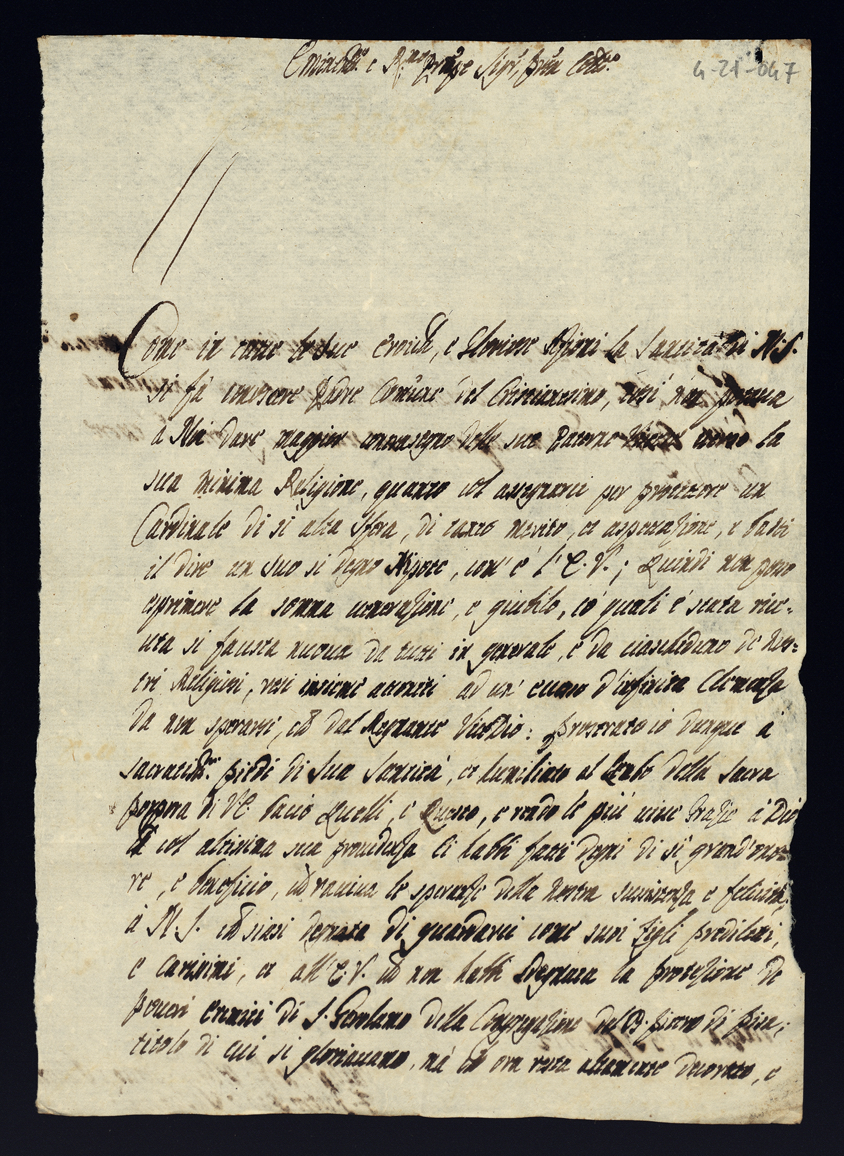 Emin.mo e R.mo Prn̄pe Sig.r, Prōn Coll.mo
4-21-047
Come in tutte le sue eroich, e gloriose Azioni la Santità di N. S.
si fà conoscere Padre Comūne del Cristianesimo, così non poteva
à Noi dare maggior contrasegno delle sue paterne verso la
sua minima Religione, quanto col assegnarci per protettore un
Cardinale di si alta sfera, di tanto merito, et aspettazione, e basti
il dire un suo si degno Nipote, com' è l' E. V.; Quindi non posso
esprimere la somma venerazione, e giubilo, co' quali è stata rice-
uta si fausta nuova da tutti in generale, e da ciascheduno de nos-
tri Religiosi, resi insieme attoniti ad un' eccesso d'infinita Clemenza
da non sperarsi, ch̄ dal Regnante : prostrato io dunque a
sacratiss.mi piedi di Sua Santità, et humiliato al lembo della sacra
porpora di V E. bacio Quelli, e Questo, e rendo le più vive grazie à Dio
ch̄ col altissima sua providenza ci habbi fatti degni di si grand' ono-
re, e beneficio, ch̄ raviva le speranze della nostra sussistenza e felicità,
à N. S. ch̄ siasi degnata di guardarci come suoi figli prediletti,
e carissimi, et all' E. V. ch̄ non habbi sdegnata la protezione de
poveri eremiti di S. Gerolamo della Congregazione del B. Pietro di Pisa;
titolo di cui si gloriavamo, mà ch̄ ora resta altamente decorato, e